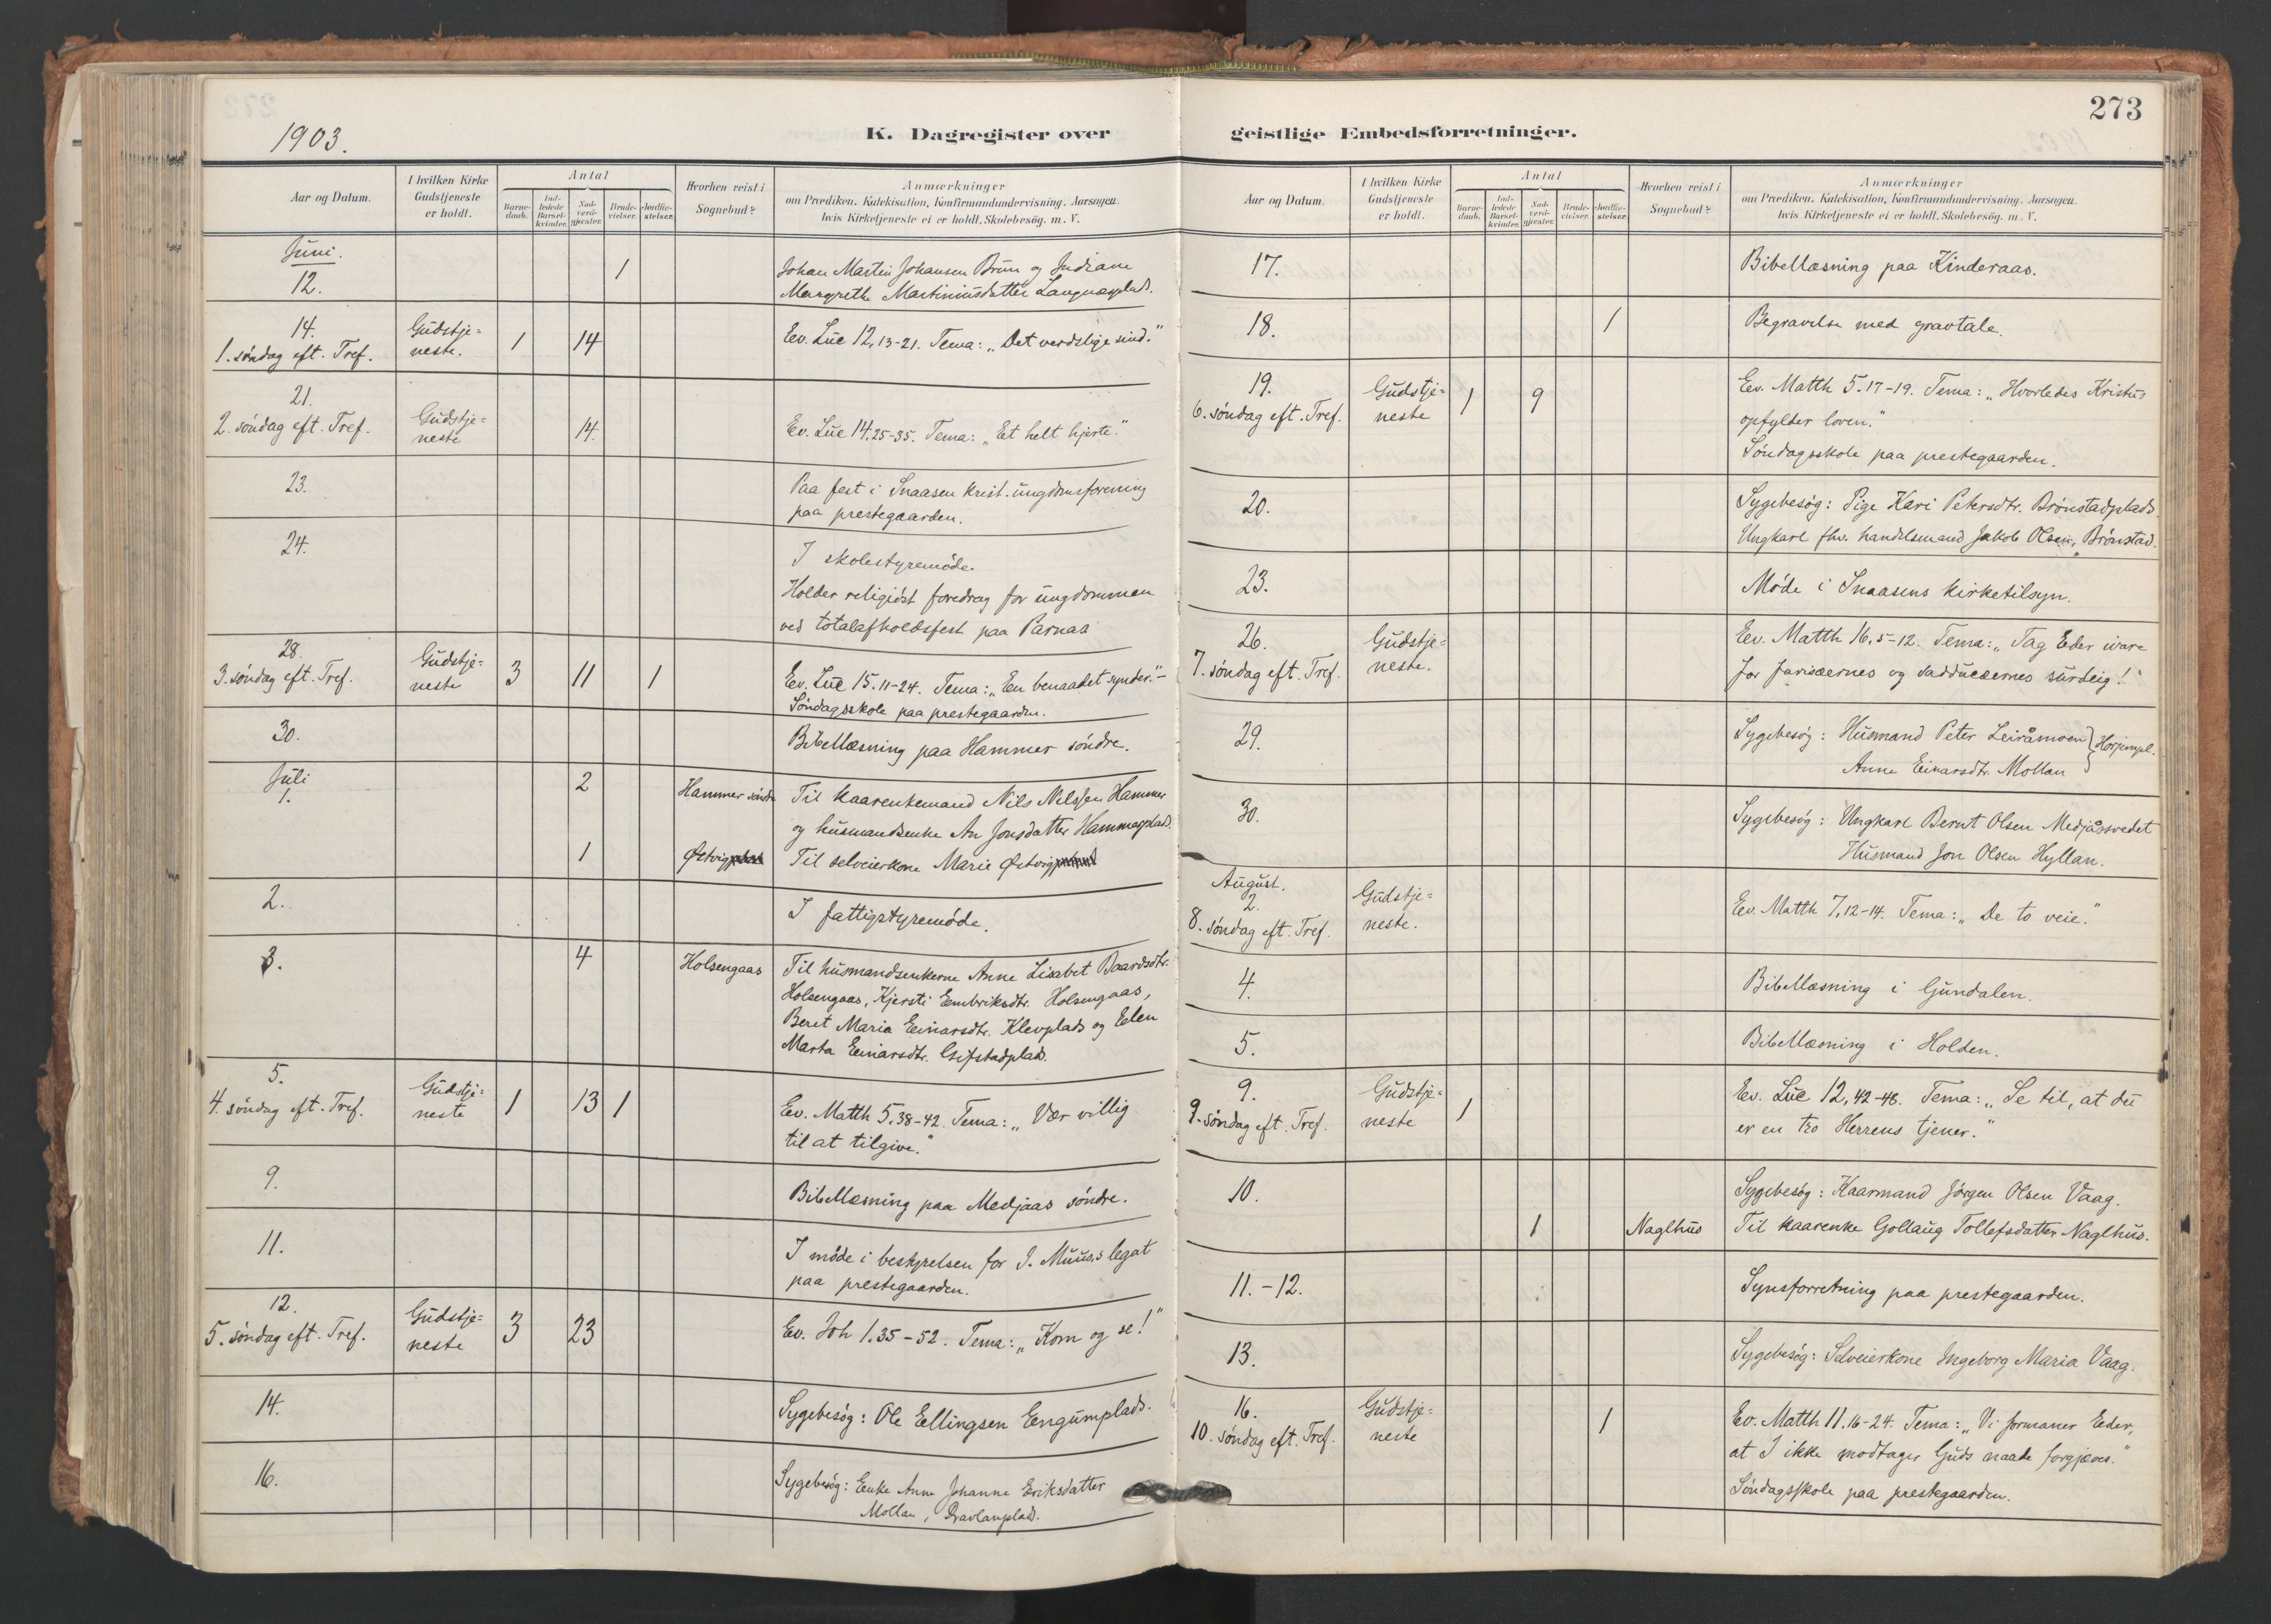 273
1903.
K. Dagregister over geistlige Embedsforretninger.
Aar og Datum.
I hvilken Kirke Gudstjeneste er holdt.
Antal
Barne-daab.
Ind-ledede Barsel-kvinder.
Nad-verd-gjæster.
Brude-vielser.
Jordfæ-stelser.
Hvorhen reist i Sognebud?
Anmærkninger
om Prædiken. Katekisation, Konfirmandundervisning. Aarsagen.
hvis Kirketjeneste ei er holdt. Skolebesög. m. V.
Juni.
12. 1 Johan Martin Johansen Brun og Indiane
Margrethe Martiniusdatter
14.
1. söndag eft. Tref. Gudstje=neste. 1 14 Ev. Luc 12,13-21. Tema: „Det verdslige sind."
21.
2. söndag eft. Tref. Gudstje=neste 14. Ev. Luc 14.25-35. Tema: „Et helt hjerte."
23. Paa fest i Snaasen krist. ungdomsforening
paa prestegaarden.
24. I skolestyremöde.
Holder religiöst foredrag for ungdommen
ved totalafholdsfest paa Parnas
28.
3. söndag eft. Tref. Gudstje=neste 3 11 1 Ev. Luc 15.11-24. Tema: „En benaadet synder."-
Söndagsskole paa prestegaarden.
30. Bibellæsning paa Hammer söndre.
Juli
1. 2 Hammer söndre Til kaarenkemand Nils Nilssen Hammer
og husmandsenke An Jonsdatter Hammerplads.
1 Østvig Til selveierkone Marie Østvig
2. I fattigstyremöde.
3. 4 Holsengaas Til husmandsenkerne Anne Lisabet Baardsdtr.
Holsengaas, Kjersti Embriksdtr. Holsengaas,
Beret Maria Einarsdtr. Klevplads og Elen
Marta Einarsdtr. Gifstadplads.
5.
4. söndag eft. Tref. Gudstje=neste 1 13 1 Ev. Matth 5.38-42. Tema: „Vær villig
til at tilgive."
9. Bibellæsning paa Medjaas söndre.
11. I möde i bestyrelsen for I. Muus,s legat
paa prestegaarden.
12.
5. söndag eft. Tref. Gudstje=neste 3 23 Ev. Joh 1.35-52. Tema: „Kom og se!"
14. Sygebesög: Ole Ellingsen Engumplads.
16. Sygebesög: Enke Anne Johanne Eriksdatter
Mollan,
Aar og Datum.
I hvilken Kirke Gudstjeneste er holdt.
Antal
Barne-daab.
Ind-ledede Barsel-kvinder.
Nad-verd-gjæster.
Brude-vielser.
Jordfæ-stelser.
Hvorhen reist i Sognebud?
Anmærkninger
om Prædiken. Katekisation, Konfirmandundervisning. Aarsagen.
hvis Kirketjeneste ei er holdt. Skolebesög. m. V.
17. Bibellæsning paa Kinderaas.
18. 1 Begravelse med gravtale.
19.
6. söndag eft. Tref. Gudstje=neste 1 9 Ev. Matth 5.17-19. Tema: „Hvorledes Kristus
opfylder loven."
Söndagsskole paa prestegaarden.
20. Sygebesög: Pige Kari Petersdtr. Brönstadplads.
Ungkarl fhv. handelsmand Jakob Olsen, Brönstad.
23. Möde i Snaasens kirketilsyn.
26.
7. söndag eft. Tref. Gudstje=neste. Ev. Matth 16,5-12. Tema: „Tag Eder ivare
for farisæernes og sadducæernes surdeig!"
29. Sygebesög: Husmand Peter Leiråmoen
Anne Einarsdtr. Mollan
30. Sygebesög: Ungkarl Bernt Olsen Medjåsvedet
Husmand Jon Olsen Hyllan.
August.
2.
8. söndag eft. Tref. Gudstje=neste. Ev. Matth 7,12-14. Tema: „De to veie."
4. Bibellæsning i Gundalen.
5. Bibellæsning i Holden.
9.
9. söndag eft. Tref. Gudstje=neste 1 Ev. Luc 12,42-48. Tema: „Se til, at du
er en tro Herrens tjener."
10. Sygebesög: Kaarmand Jörgen Olsen Vaag.
1 Naglhus Til kaarenke Gollaug Tollefsdatter Naglhus.
11.-12. Synsforretning paa prestegaarden.
13. Sygebesög: Selveierkone Ingeborg Maria Vaag.
16.
10. söndag eft. Tref. Gudstje=neste 1 Ev. Matth 11.16-24. Tema: „Vi formaner Eder,
at I ikke modtager Guds naade forgjæves."
Söndagsskole paa prestegaarden.